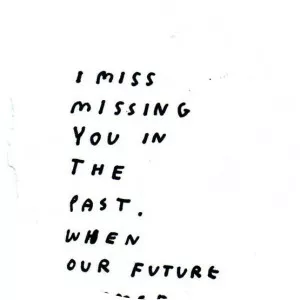 I MISS
MISSING
YOU IN
THE
PAST.
WHEN
OUR FUTURE